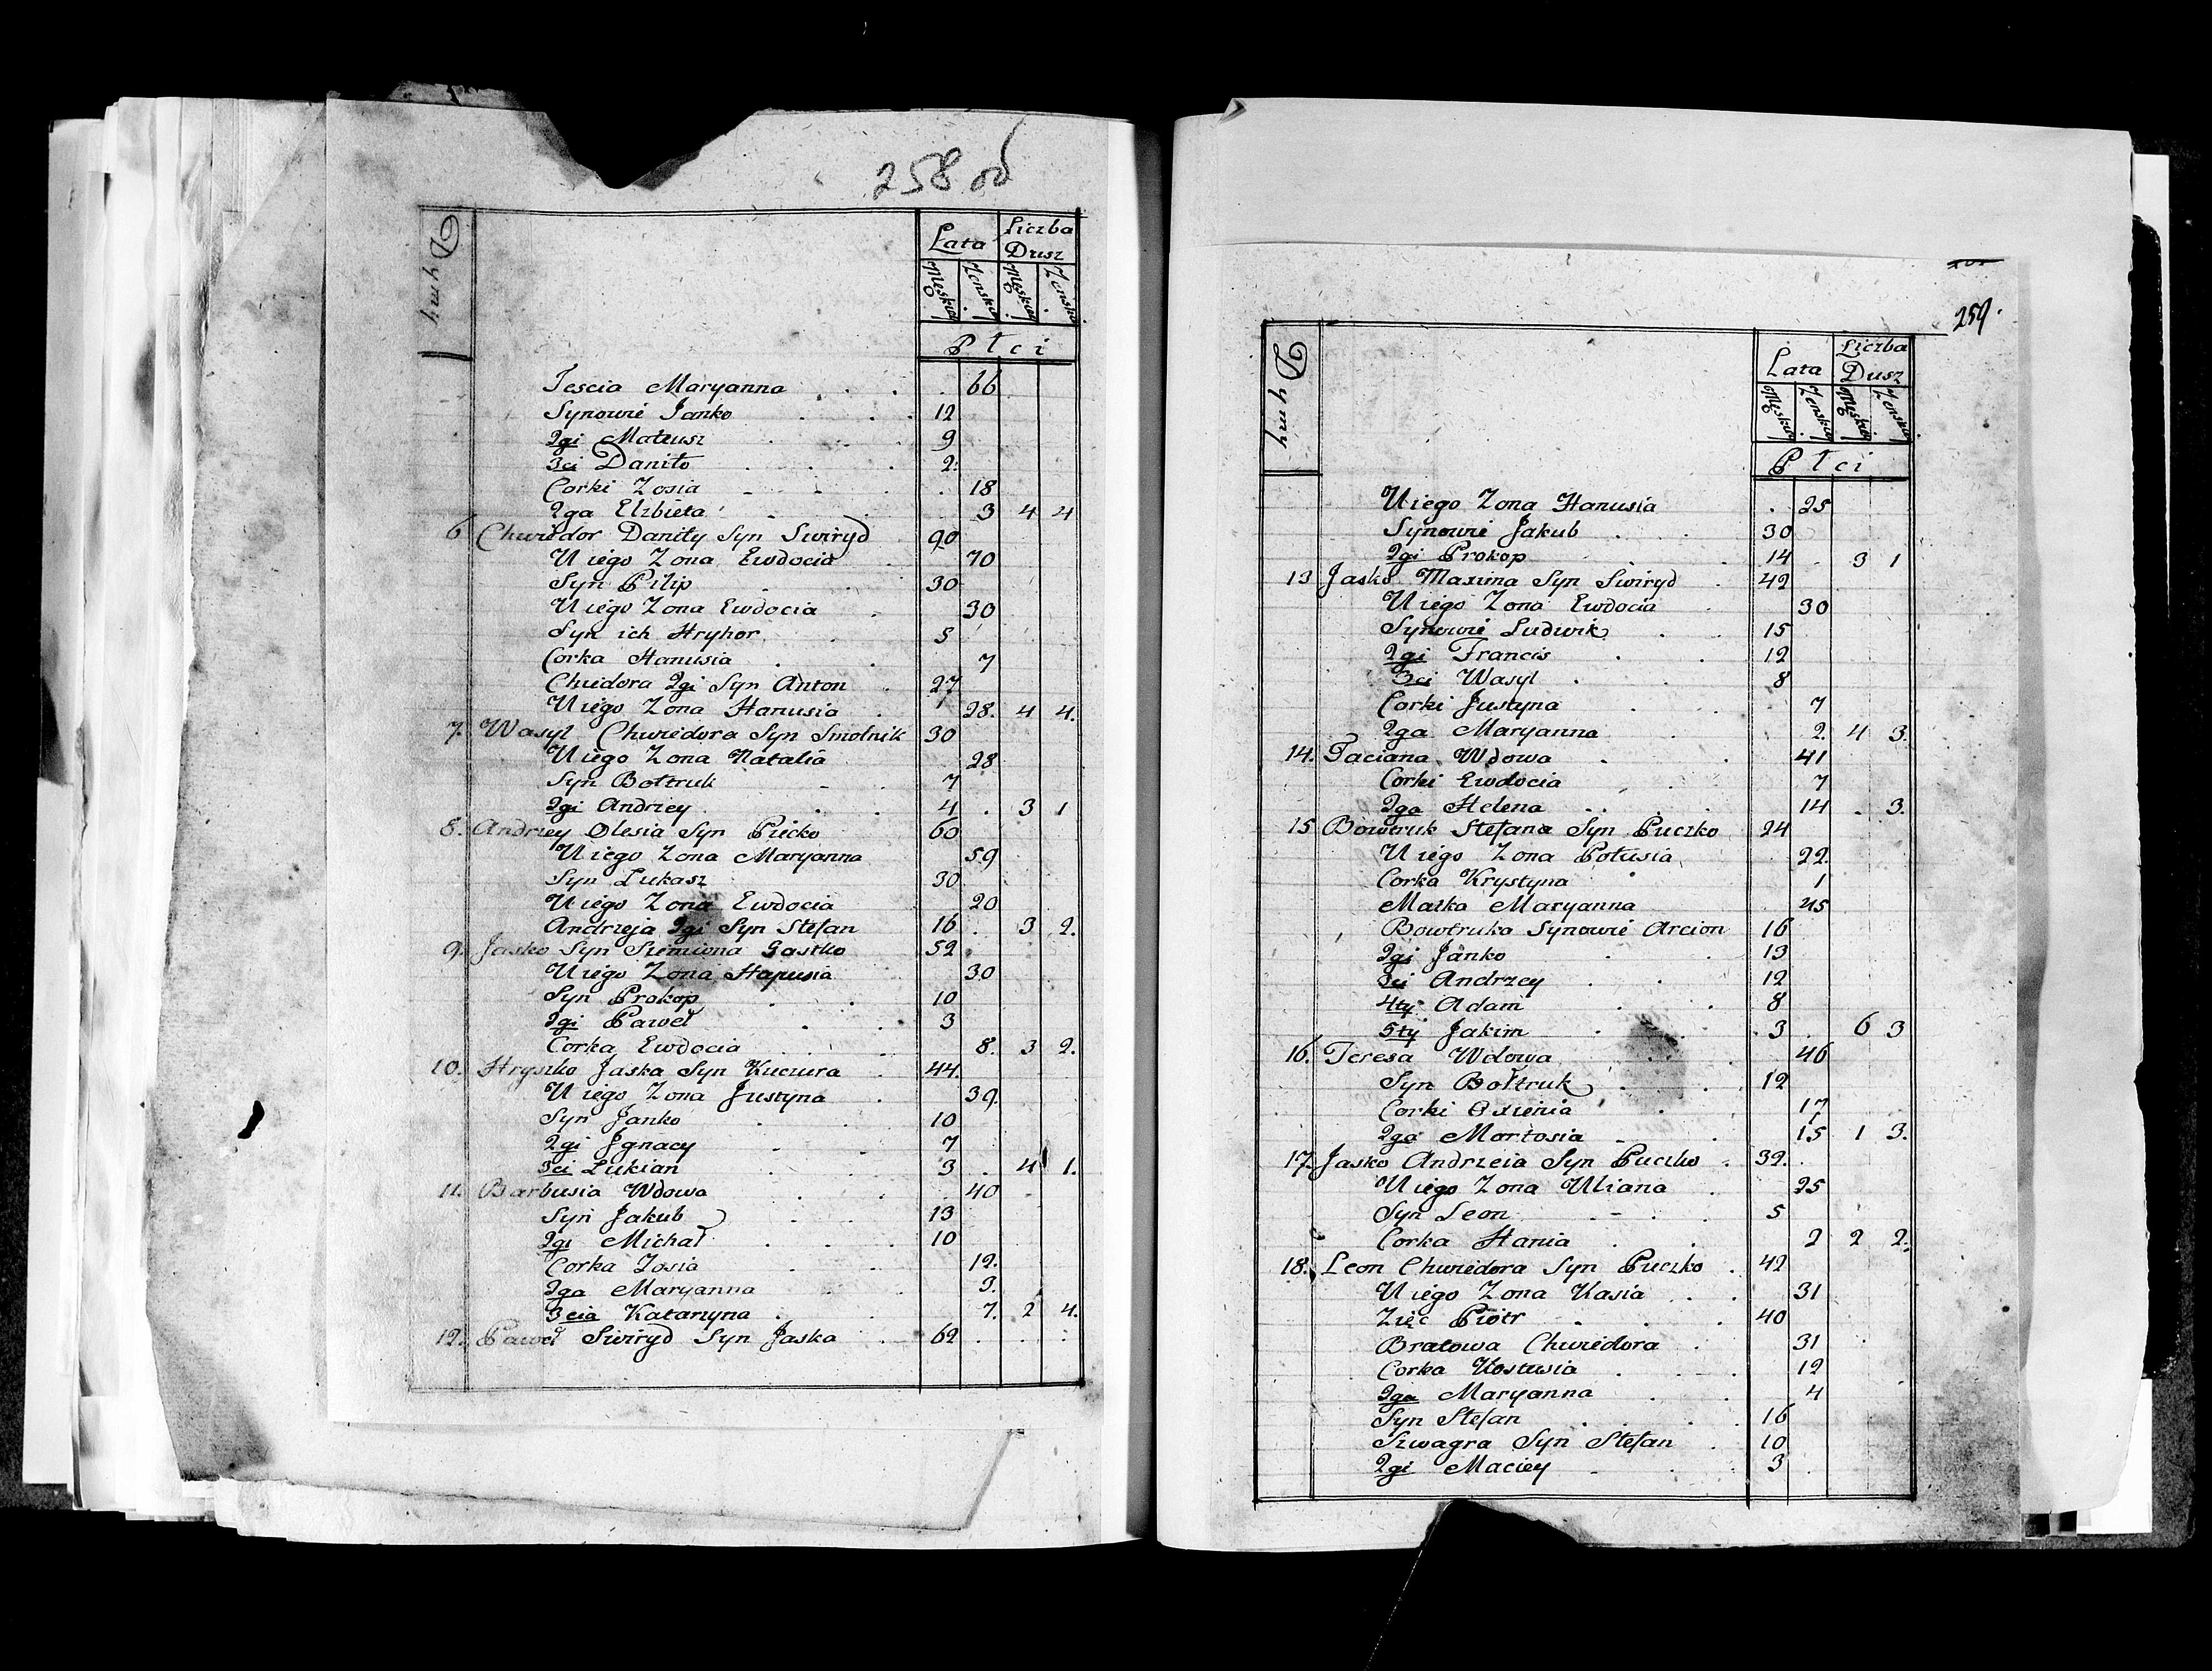 258 об
Dymy
Lata Liczba Dusz
Męskiej Zenskiej Męskiej Zenskiej
Płci
Tescia Maryanna 66
Synowie Janko 12
2gi Mateusz 9
3ci Daniło 2
Corki Zosia 18
2ga Elzbieta 3 4 4
6 Chwiedor Daniły Syn Swiryd 90
U iego Zona Ewdocia 70
Syn Pilip 30
U iego Zona Ewdocia 30
Syn ich Hryhor 5
Corka Hanusia 7
Chwedora 2gi Syn Anton 27
U iego Zona Hanusia 28. 4 4.
7. Wasyl Chwiedora Syn Smolnik 30
U iego Zona Natalia 28
Syn Bołtruk 7
2gi Andrzey 4 3 1
8. Andrzey Olesia Syn Piećko 60
U iego Zona Maryanna 59
Syn Lukasz 30
U iego Zona Ewdocia 20
Andrzeja 2gi Syn Stefan 16 3 2.
9. Jasko Syn Siemiona Gastko 52
U iego Zona Hapusia 30
Syn Prokop 10
2gi Paweł 3
Corka Ewdocia 8. 3 2.
10. Hryszko Jaska Syn Kuczura 44.
U iego Zona Justyna 39.
Syn Janko 10
2gi Jgnacy 7
3ci Lukian 3 4 1.
11. Barbusia Wdowa 40
Syn Jakub 13
2gi Michał 10
Corka Zosia 12.
2ga Maryanna 9.
3cia Katarzyna 7. 2 4.
12. Paweł Swiryd Syn Jaska 62
259.
Dymy
Lata Liczba Dusz
Męskiej Zenskiej Męskiej Zenskiej
Płci
U iego Zona Hanusia 25
Synowie Jakub 30
2gi Prokop 14 3 1
13 Jasko Maxima Syn Swiryd 42
U iego Zona Ewdocia 30
Synowie Ludwik 15
2gi Francis 12
3ci Wasyl 8
Corki Justyna 7
2ga Maryanna 2. 4 3.
14. Taciana Wdowa 41
Corki Ewdocia 7
2ga Helena 14 3.
15 Bowtruk Stefana Syn Puczko 24
U iego Zona Połusia 22.
Corka Krystyna 1
Matka Maryanna 45
Bowtruka Synowie Arcion 16
2gi Janko 13
3ci Andrzey 12
4ty Adam 8
5ty Jakim 3 6 3
16. Teresa Wdowa 46
Syn Bołtruk 12
Corki Oxienia 17
2ga Mortosia 15 1 3.
17. Jasko Andrzeia Syn Puczko 32.
U iego Zona Uliana 25
Syn Leon 5
Corka Hania 2 2 2.
18. Leon Chwiedora Syn Puczko 42
U iego Zona Kasia 31
Zięć Piotr 40
Bratowa Chwiedora 31
Corka Kostusia 12
2ga Maryanna 4
Syn Stefan 16
Szwagra Syn Stefan 10
2gi Maciey 3